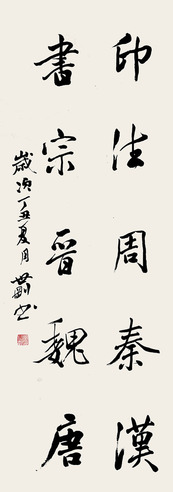 印法周秦漢
書宗晉魏唐
歲次丁丑夏月
書